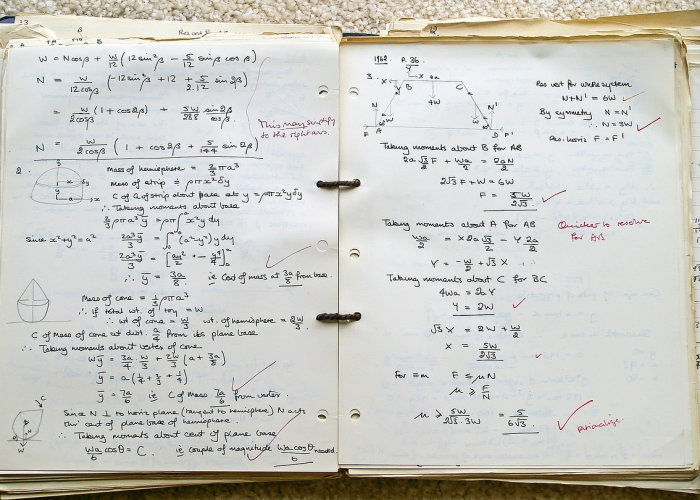 33
W = Ncosβ + W/12 (12 sin²β - 5/12 sinβ cosβ)
N = W/12cosβ (-12sin²β + 12 + 5/2.12 sin2β)
= W/2cosβ (1 + cos2β) + 5W/288 sin2β/cosβ.
This may simplify
to the right ans.
N = W/2cosβ (1 + cos2β + 5/144 sin2β)
2.
Mass of hemisphere = 2/3 ρπa³
Mass of strip = ρπx²δy
C of G of strip about base at y = ρπx²yδy
∴ Taking moments about base
2/3 ρπa³ȳ = ρπ∫x²y dy
Since x²+y²=a²
2a³ȳ/3 = ∫(a²-y²)y dy
∴ ȳ = 3a/8 ie C of mass at 3a/8 from base.
Mass of cone = 1/3 ρπa³
∴ If total wt. of toy = W
∴ wt of cone = W/3 wt. of hemisphere = 2W/3
C of Mass of cone at dist. a/4 from its plane base
∴ Taking moments about vertex of cone
Wȳ = 3a/4 · W/3 + 2W/3 (a + 3a/8)
ȳ = a(1/4 + 2/3 + 1/4)
ȳ = 7a/6 is C of Mass 7a/6 from vertex.
Since N ⊥ to horiz plane (tangent to hemisphere) N acts
thro' cent of plane base of hemisphere.
∴ Taking moments about cent of plane base
Wa/6 cosθ = C. ie couple of magnitude Wa cosθ/6 needed
1962. P. 36
3.
Res vert for whole system
N+N' = 6W
By symmetry N = N'
∴ N = 3W
Res. horiz F = F'
Taking moments about B for AB
2a√3/2 F + Wa/2 = 2aN/2
2√3 F + W = 6W
F = 5W/2√3
Taking moments about A for AB
Quicker to resolve
for AB
Wa/2 = X2a√3/2 - Y 2a/2
Y = -W/2 + √3 X
Taking moments about C for BC
4Wa = 2a Y
Y = 2W
√3 X = 2W + W/2
X = 5W/2√3
For ≡m F ≤ μN
μ ≥ F/N
μ ≥ 5W/2√3·3W = 5/6√3.
rationalise.